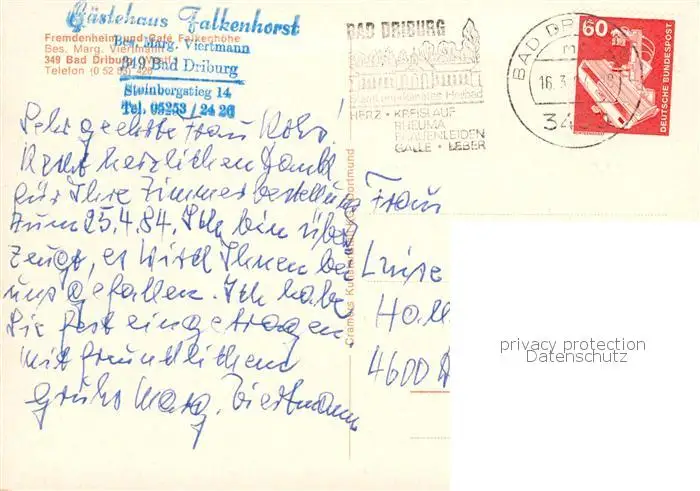 Gästehaus Falkenhorst
Bes. Marg. Viertmann
349 Bad Driburg
Steinbergstieg 14
Tel. 05253/24 26
Fremdenheim und Café Falkenhöhe
Bes. Marg. Viertmann
349 Bad Driburg
Telefon (0 52 53) 426
BAD DRIBURG
Heilbad
HERZ • KREISLAUF
RHEUMA
FRAUENLEIDEN
GALLE • LEBER
BAD DRI
16.3.
34
60
DEUTSCHE BUNDESPOST
Sehr geehrte Frau
Recht herzlichen Dank
für Ihre Zimmerbestellung
zum 25.4.84. Ich bin über
zeugt, es wird Ihnen bei
uns gefallen. Ich habe
Sie fest eingetragen
Mit freundlichen
Gruß Marg. Viertmann
Cramers Kunst Dortmund
Frau
Luise
Ho
4600 D
privacy protection
Datenschutz